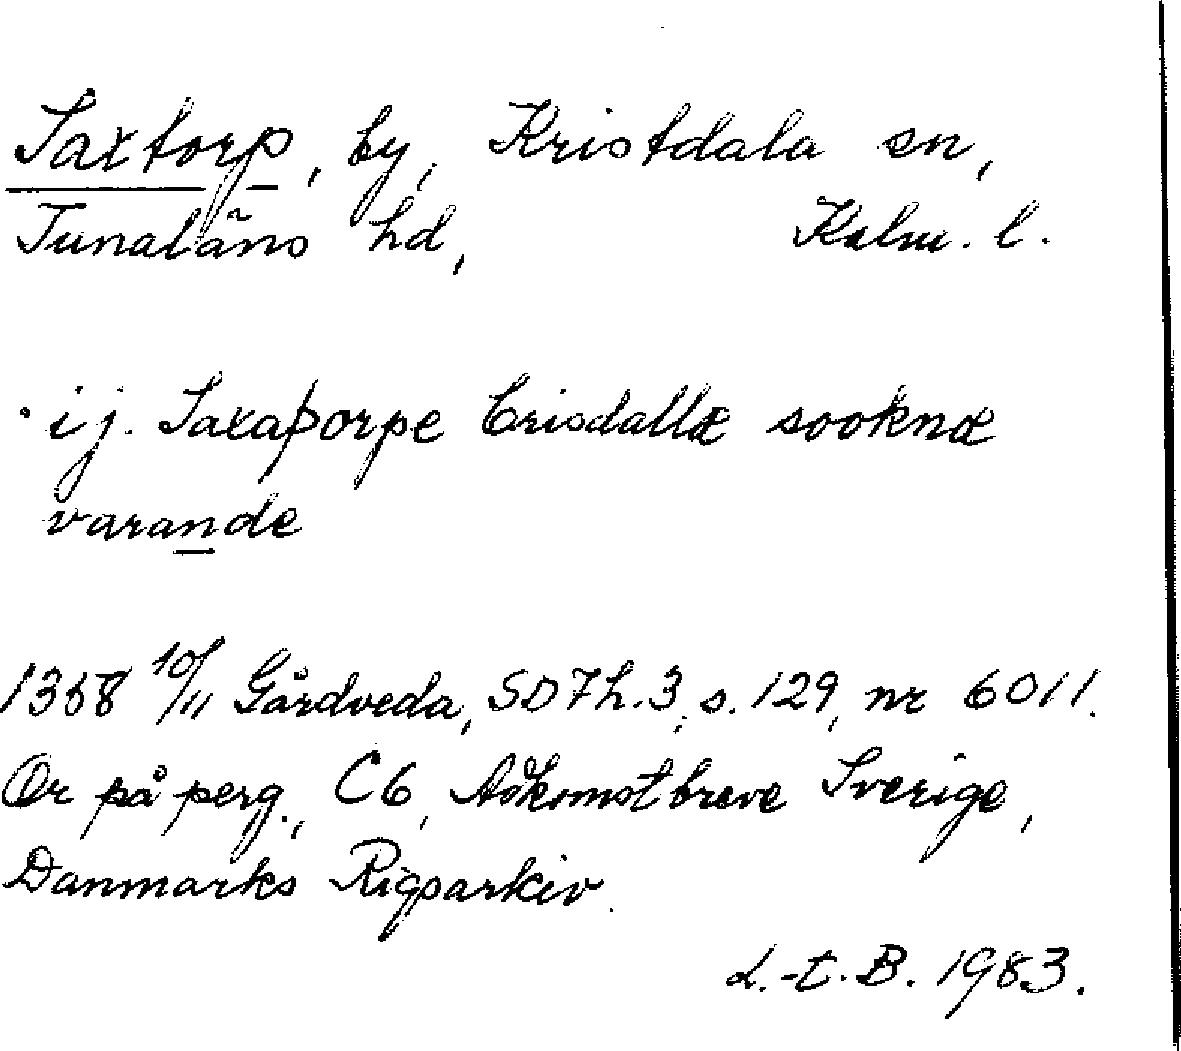 Saxtorp, by, Kristdala sn,
Tunaläns hd, Kalm. l.
ij. Saxaþorpe Crisdallæ sooknæ
varande
1358 10/11 Gårdveda, SD7h.3, s.129, nr 6011.
Or på perg., C6, Adkomstbreve Sverige,
Danmarks Rigsarkiv.
L.-t. B. 1983.